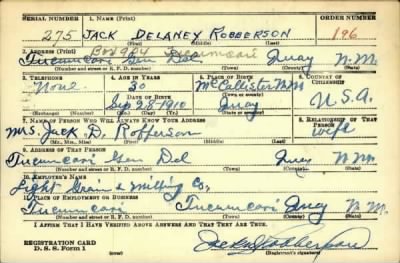 SERIAL NUMBER 1. NAME (Print) ORDER NUMBER
275 JACK DELANEY ROBBERSON 196
(First) (Middle) (Last)
2. ADDRESS (Print) Box 984 Tucumcari
Tucumcari Gen Del. Quay N.M.
(Number and street or R. F. D. number) (Town) (County) (State)
3. TELEPHONE 4. AGE IN YEARS 5. PLACE OF BIRTH 6. COUNTRY OF CITIZENSHIP
None 30 McCallister N.M.
DATE OF BIRTH (Town or county)
Sep 28 1910 Quay U.S.A.
(Exchange) (Number) (Mo.) (Day) (Yr.) (State or country)
7. NAME OF PERSON WHO WILL ALWAYS KNOW YOUR ADDRESS 8. RELATIONSHIP OF THAT PERSON
Mrs. Jack D. Rofferson wife
(Mr., Mrs., Miss) (First) (Middle) (Last)
9. ADDRESS OF THAT PERSON
Tucumcari Gen Del Quay N.M.
(Number and street or R. F. D. number) (Town) (County) (State)
10. EMPLOYER'S NAME
Light Grain & Milling Co,
11. PLACE OF EMPLOYMENT OR BUSINESS
Tucumcari Tucumcari Quay N.M.
(Number and street or R. F. D. number) (Town) (County) (State)
I AFFIRM THAT I HAVE VERIFIED ABOVE ANSWERS AND THAT THEY ARE TRUE.
REGISTRATION CARD
D. S. S. Form 1 Jack D Robberson
(Registrant's signature)